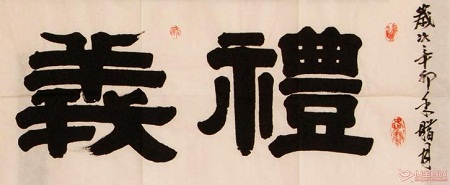 禮義
歲次辛卯年腊月